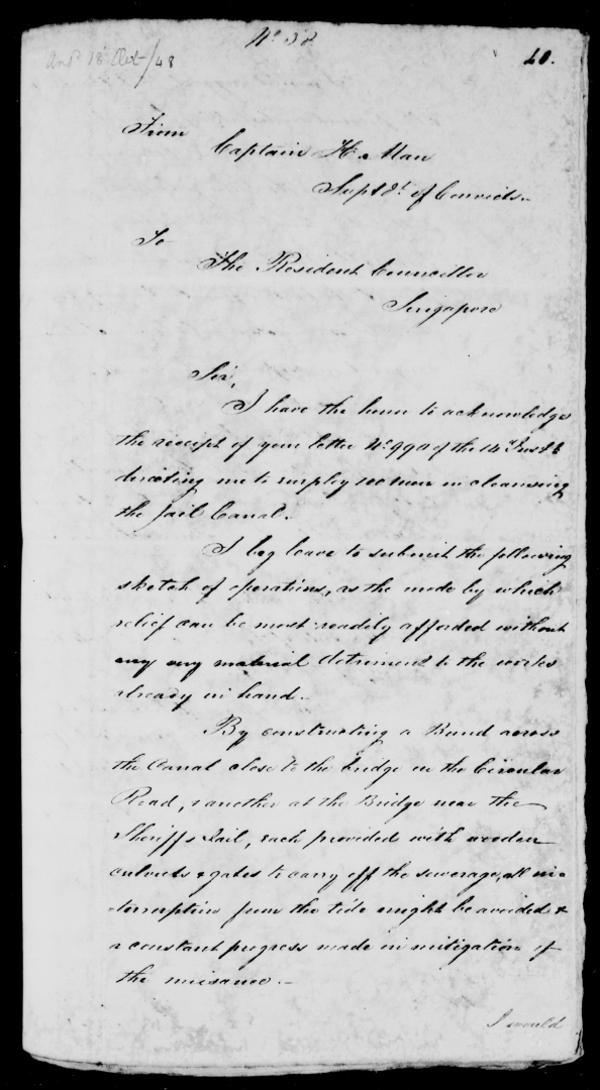 Ansd 18 Oct/48
No 38
40.
From
Captain H. Man
Supdt. of Convicts.
To
The Resident Councillor
Singapore
Sir,
I have the honor to acknowledge
the receipt of your letter No 99 of the 14th Inst
directing me to employ 100 men in cleansing
the Jail Canal.
I beg leave to submit the following
sketch of operations, as the mode by which
relief can be most readily afforded without
any any material detriment to the works
already in hand.
By constructing a Bund across
the Canal close to the bridge in the Circular
Road, & another at the Bridge near the
Sheriff's Jail, each provided with wooden
culverts & gates to carry off the sewerage, all in-
-terruption from the tide might be avoided &
a constant progress made in mitigation of
the nuisance.-
I would